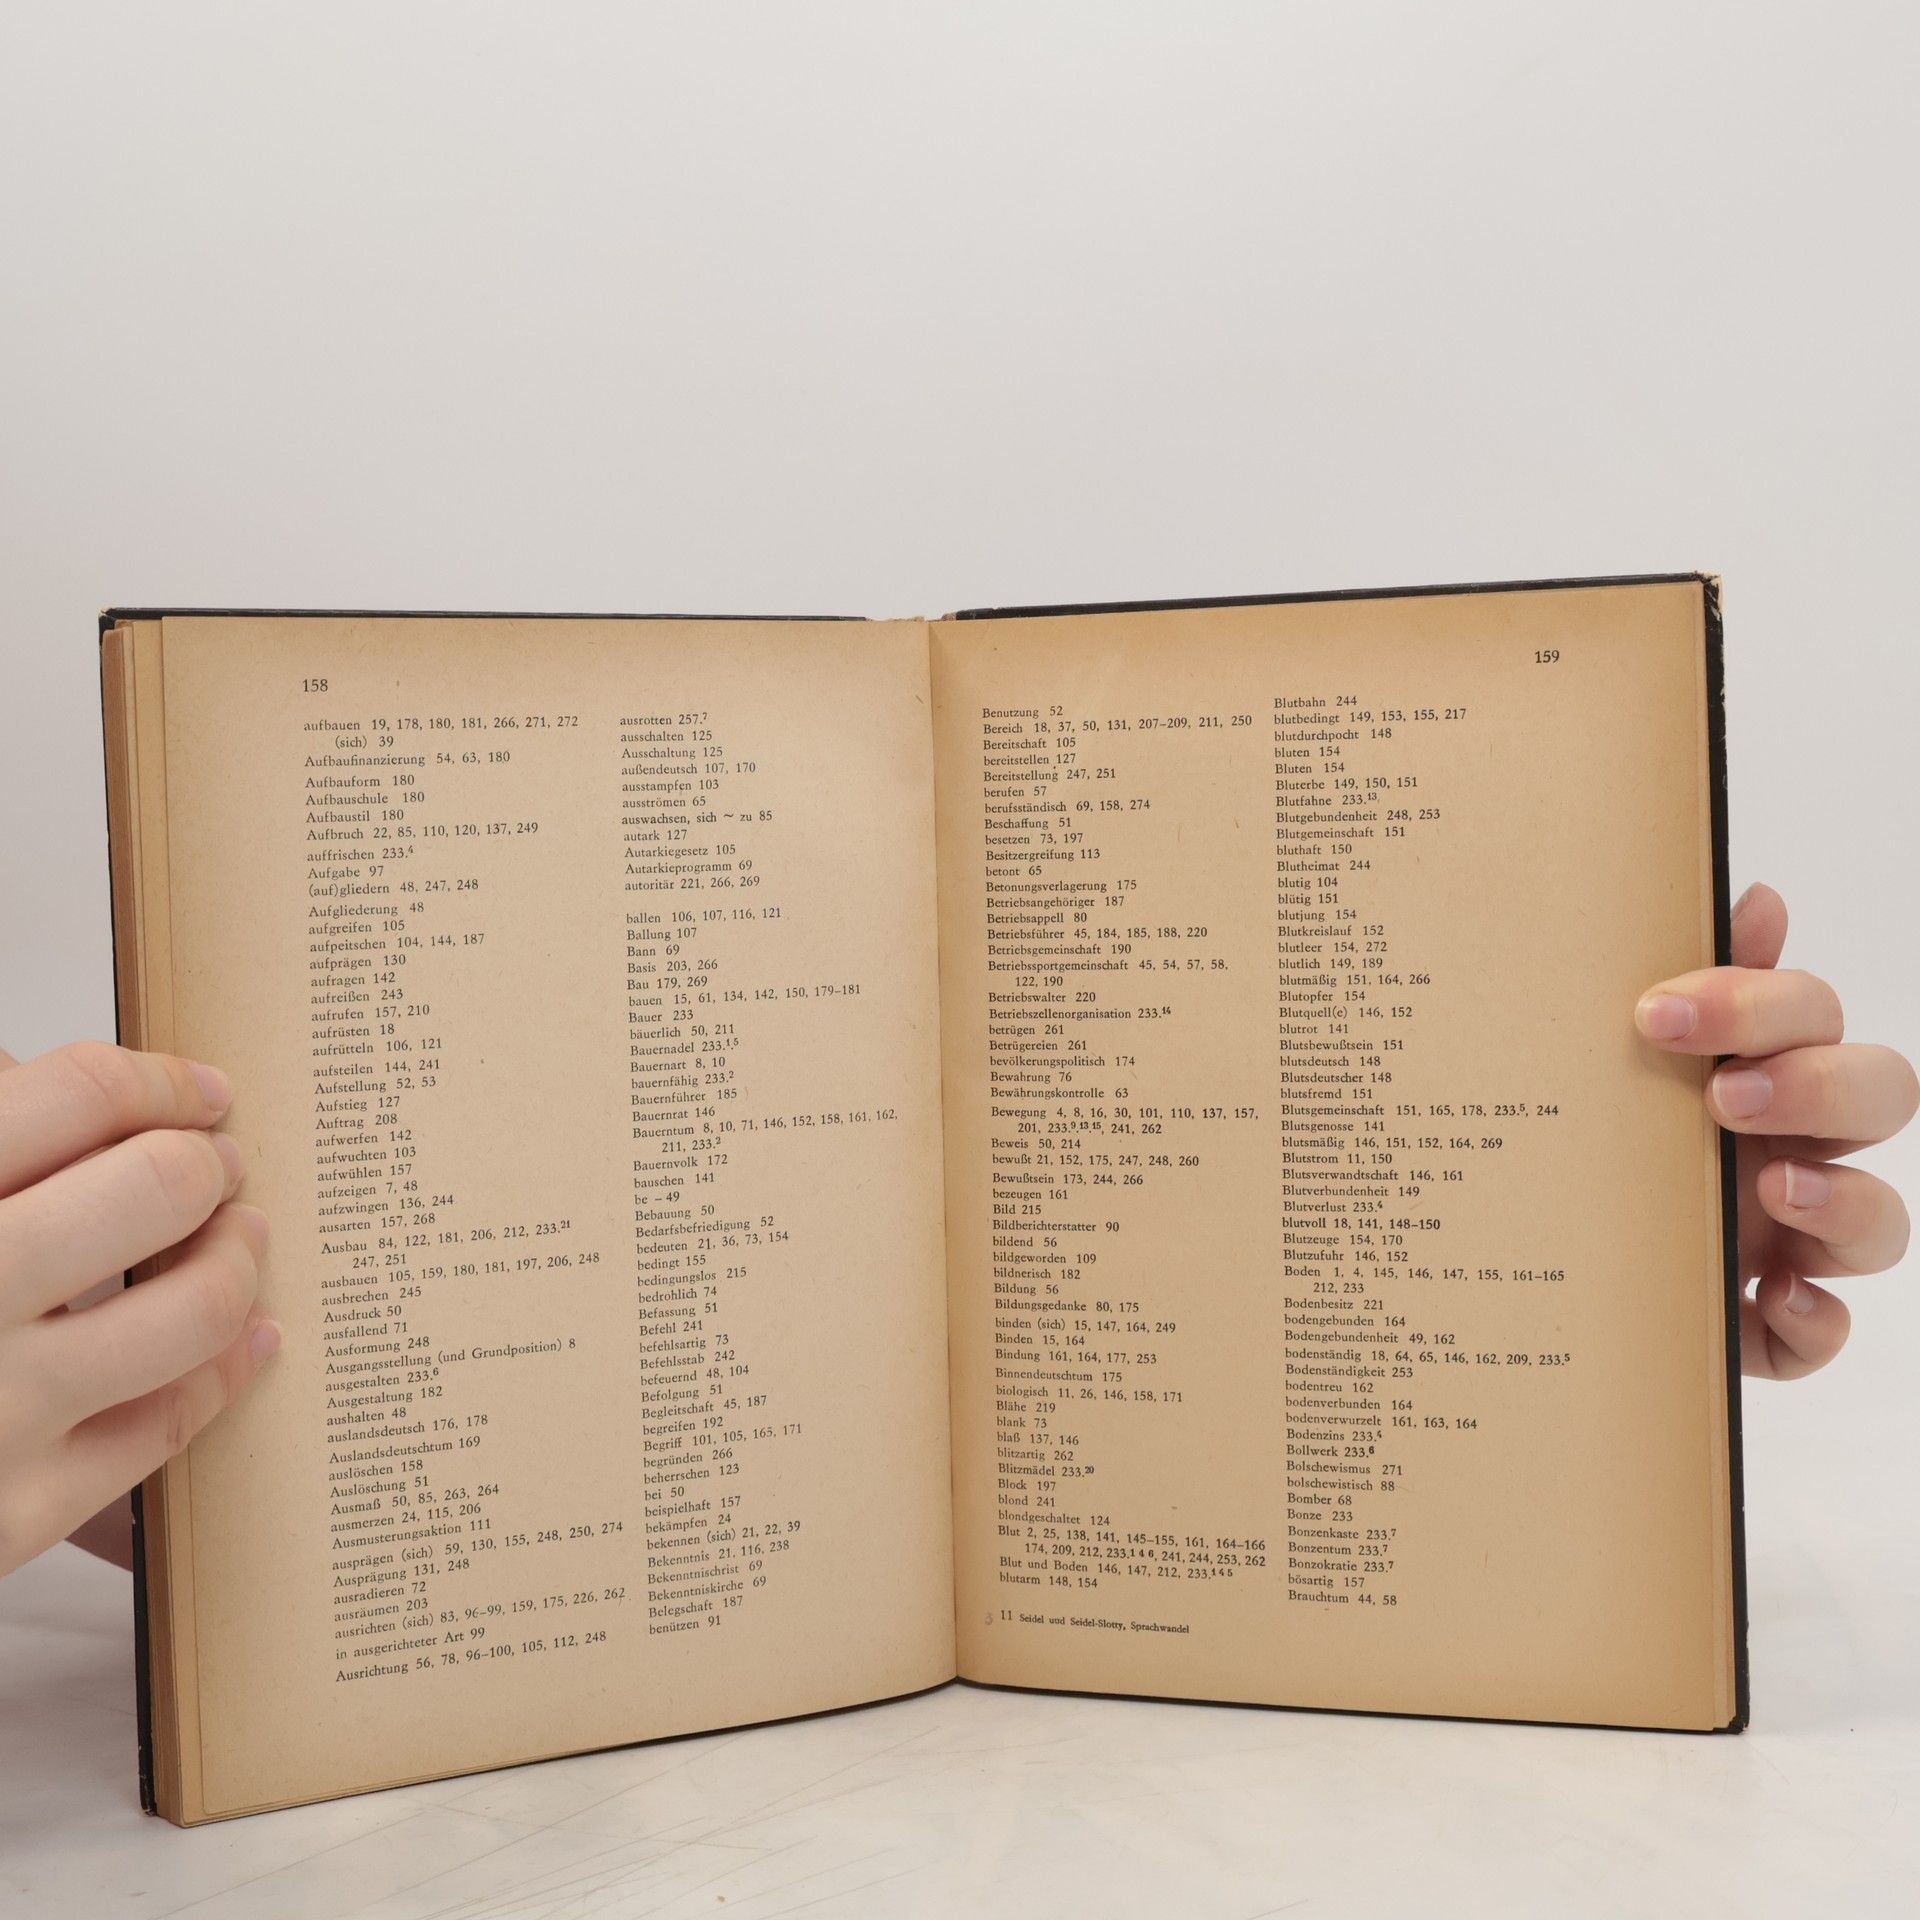 158
aufbauen 19, 178, 180, 181, 266, 271, 272
(sich) 39
Aufbaufinanzierung 54, 63, 180
Aufbauform 180
Aufbauschule 180
Aufbaustil 180
Aufbruch 22, 85, 110, 120, 137, 249
auffrischen 233.⁴
Aufgabe 97
(auf)gliedern 48, 247, 248
Aufgliederung 48
aufgreifen 105
aufpeitschen 104, 144, 187
aufprägen 130
aufragen 142
aufreißen 243
aufrufen 157, 210
aufrüsten 18
aufrütteln 106, 121
aufsteilen 144, 241
Aufstellung 52, 53
Aufstieg 127
Auftrag 208
aufwerfen 142
aufwuchten 103
aufwühlen 157
aufzeigen 7, 48
aufzwingen 136, 244
ausarten 157, 268
Ausbau 84, 122, 181, 206, 212, 233.²¹
247, 251
ausbauen 105, 159, 180, 181, 197, 206, 248
ausbrechen 245
Ausdruck 50
ausfallend 71
Ausformung 248
Ausgangsstellung (und Grundposition) 8
ausgestalten 233.⁶
Ausgestaltung 182
aushalten 48
auslandsdeutsch 176, 178
Auslandsdeutschtum 169
auslöschen 158
Auslöschung 51
Ausmaß 50, 85, 263, 264
ausmerzen 24, 115, 206
Ausmusterungsaktion 111
ausprägen (sich) 59, 130, 155, 248, 250, 274
Ausprägung 131, 248
ausradieren 72
ausräumen 203
ausrichten (sich) 83, 96–99, 159, 175, 226, 262
in ausgerichteter Art 99
Ausrichtung 56, 78, 96–100, 105, 112, 248
ausrotten 257.⁷
ausschalten 125
Ausschaltung 125
außendeutsch 107, 170
ausstampfen 103
ausströmen 65
auswachsen, sich ~ zu 85
autark 127
Autarkiegesetz 105
Autarkieprogramm 69
autoritär 221, 266, 269
ballen 106, 107, 116, 121
Ballung 107
Bann 69
Basis 203, 266
Bau 179, 269
bauen 15, 61, 134, 142, 150, 179–181
Bauer 233
bäuerlich 50, 211
Bauernadel 233.¹.⁵
Bauernart 8, 10
bauernfähig 233.²
Bauernführer 185
Bauernrat 146
Bauerntum 8, 10, 71, 146, 152, 158, 161, 162,
211, 233.²
Bauernvolk 172
bauschen 141
be – 49
Bebauung 50
Bedarfsbefriedigung 52
bedeuten 21, 36, 73, 154
bedingt 155
bedingungslos 215
bedrohlich 74
Befassung 51
Befehl 241
befehlsartig 73
Befehlsstab 242
befeuernd 48, 104
Befolgung 51
Begleitschaft 45, 187
begreifen 192
Begriff 101, 105, 165, 171
begründen 266
beherrschen 123
bei 50
beispielhaft 157
bekämpfen 24
bekennen (sich) 21, 22, 39
Bekenntnis 21, 116, 238
Bekenntnischrist 69
Bekenntniskirche 69
Belegschaft 187
benützen 91
159
Benutzung 52
Bereich 18, 37, 50, 131, 207–209, 211, 250
Bereitschaft 105
bereitstellen 127
Bereitstellung 247, 251
berufen 57
berufsständisch 69, 158, 274
Beschaffung 51
besetzen 73, 197
Besitzergreifung 113
betont 65
Betonungsverlagerung 175
Betriebsangehöriger 187
Betriebsappell 80
Betriebsführer 45, 184, 185, 188, 220
Betriebsgemeinschaft 190
Betriebssportgemeinschaft 45, 54, 57, 58,
122, 190
Betriebswalter 220
Betriebszellenorganisation 233.¹⁴
betrügen 261
Betrügereien 261
bevölkerungspolitisch 174
Bewahrung 76
Bewährungskontrolle 63
Bewegung 4, 8, 16, 30, 101, 110, 137, 157,
201, 233.⁹.¹³.¹⁵, 241, 262
Beweis 50, 214
bewußt 21, 152, 175, 247, 248, 260
Bewußtsein 173, 244, 266
bezeugen 161
Bild 215
Bildberichterstatter 90
bildend 56
bildgeworden 109
bildnerisch 182
Bildung 56
Bildungsgedanke 80, 175
binden (sich) 15, 147, 164, 249
Binden 15, 164
Bindung 161, 164, 177, 253
Binnendeutschtum 175
biologisch 11, 26, 146, 158, 171
Blähe 219
blank 73
blaß 137, 146
blitzartig 262
Blitzmädel 233.²⁰
Block 197
blond 241
blondgeschaltet 124
Blut 2, 25, 138, 141, 145–155, 161, 164–166
174, 209, 212, 233.¹ ⁴ ⁶, 241, 244, 253, 262
Blut und Boden 146, 147, 212, 233.¹ ⁴ ⁵
blutarm 148, 154
11 Seidel und Seidel-Slotty, Sprachwandel
Blutbahn 244
blutbedingt 149, 153, 155, 217
blutdurchpocht 148
bluten 154
Bluten 154
Bluterbe 149, 150, 151
Blutfahne 233.¹³
Blutgebundenheit 248, 253
Blutgemeinschaft 151
bluthaft 150
Blutheimat 244
blutig 104
blütig 151
blutjung 154
Blutkreislauf 152
blutleer 154, 272
blutlich 149, 189
blutmäßig 151, 164, 266
Blutopfer 154
Blutquell(e) 146, 152
blutrot 141
Blutsbewußtsein 151
blutsdeutsch 148
Blutsdeutscher 148
blutsfremd 151
Blutsgemeinschaft 151, 165, 178, 233.⁵, 244
Blutsgenosse 141
blutsmäßig 146, 151, 152, 164, 269
Blutstrom 11, 150
Blutsverwandtschaft 146, 161
Blutverbundenheit 149
Blutverlust 233.⁴
blutvoll 18, 141, 148–150
Blutzeuge 154, 170
Blutzufuhr 146, 152
Boden 1, 4, 145, 146, 147, 155, 161–165
212, 233
Bodenbesitz 221
bodengebunden 164
Bodengebundenheit 49, 162
bodenständig 18, 64, 65, 146, 162, 209, 233.⁵
Bodenständigkeit 253
bodentreu 162
bodenverbunden 164
bodenverwurzelt 161, 163, 164
Bodenzins 233.⁴
Bollwerk 233.⁶
Bolschewismus 271
bolschewistisch 88
Bomber 68
Bonze 233
Bonzenkaste 233.⁷
Bonzentum 233.⁷
Bonzokratie 233.⁷
bösartig 157
Brauchtum 44, 58